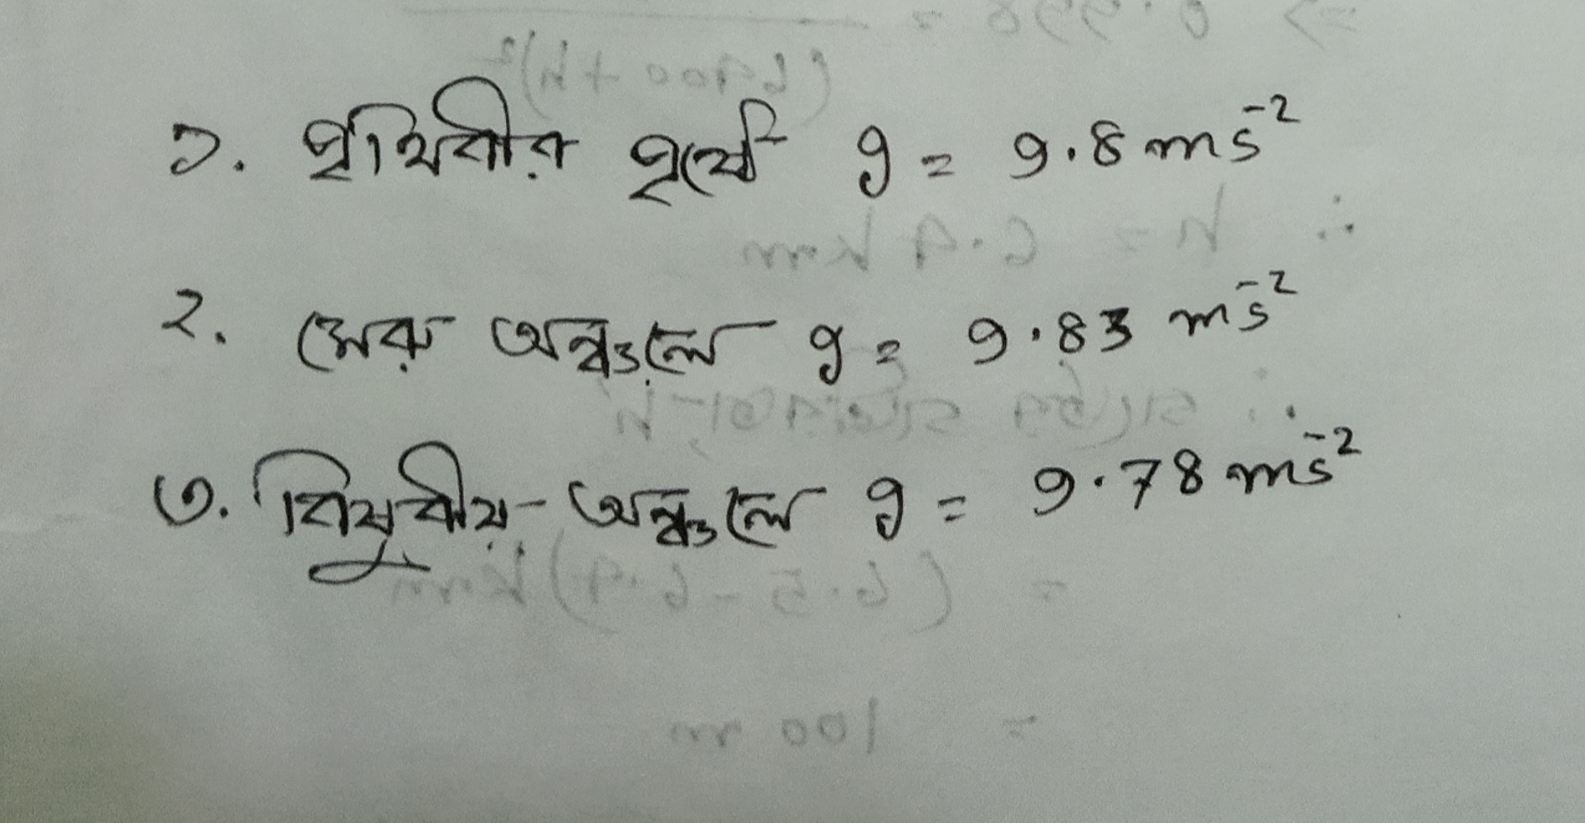 ১. পৃথিবীর পৃষ্ঠে g = 9.8 ms⁻²
২. মেরু অঞ্চলে g = 9.83 ms⁻²
৩. বিষুবীয় অঞ্চলে g = 9.78 ms⁻²